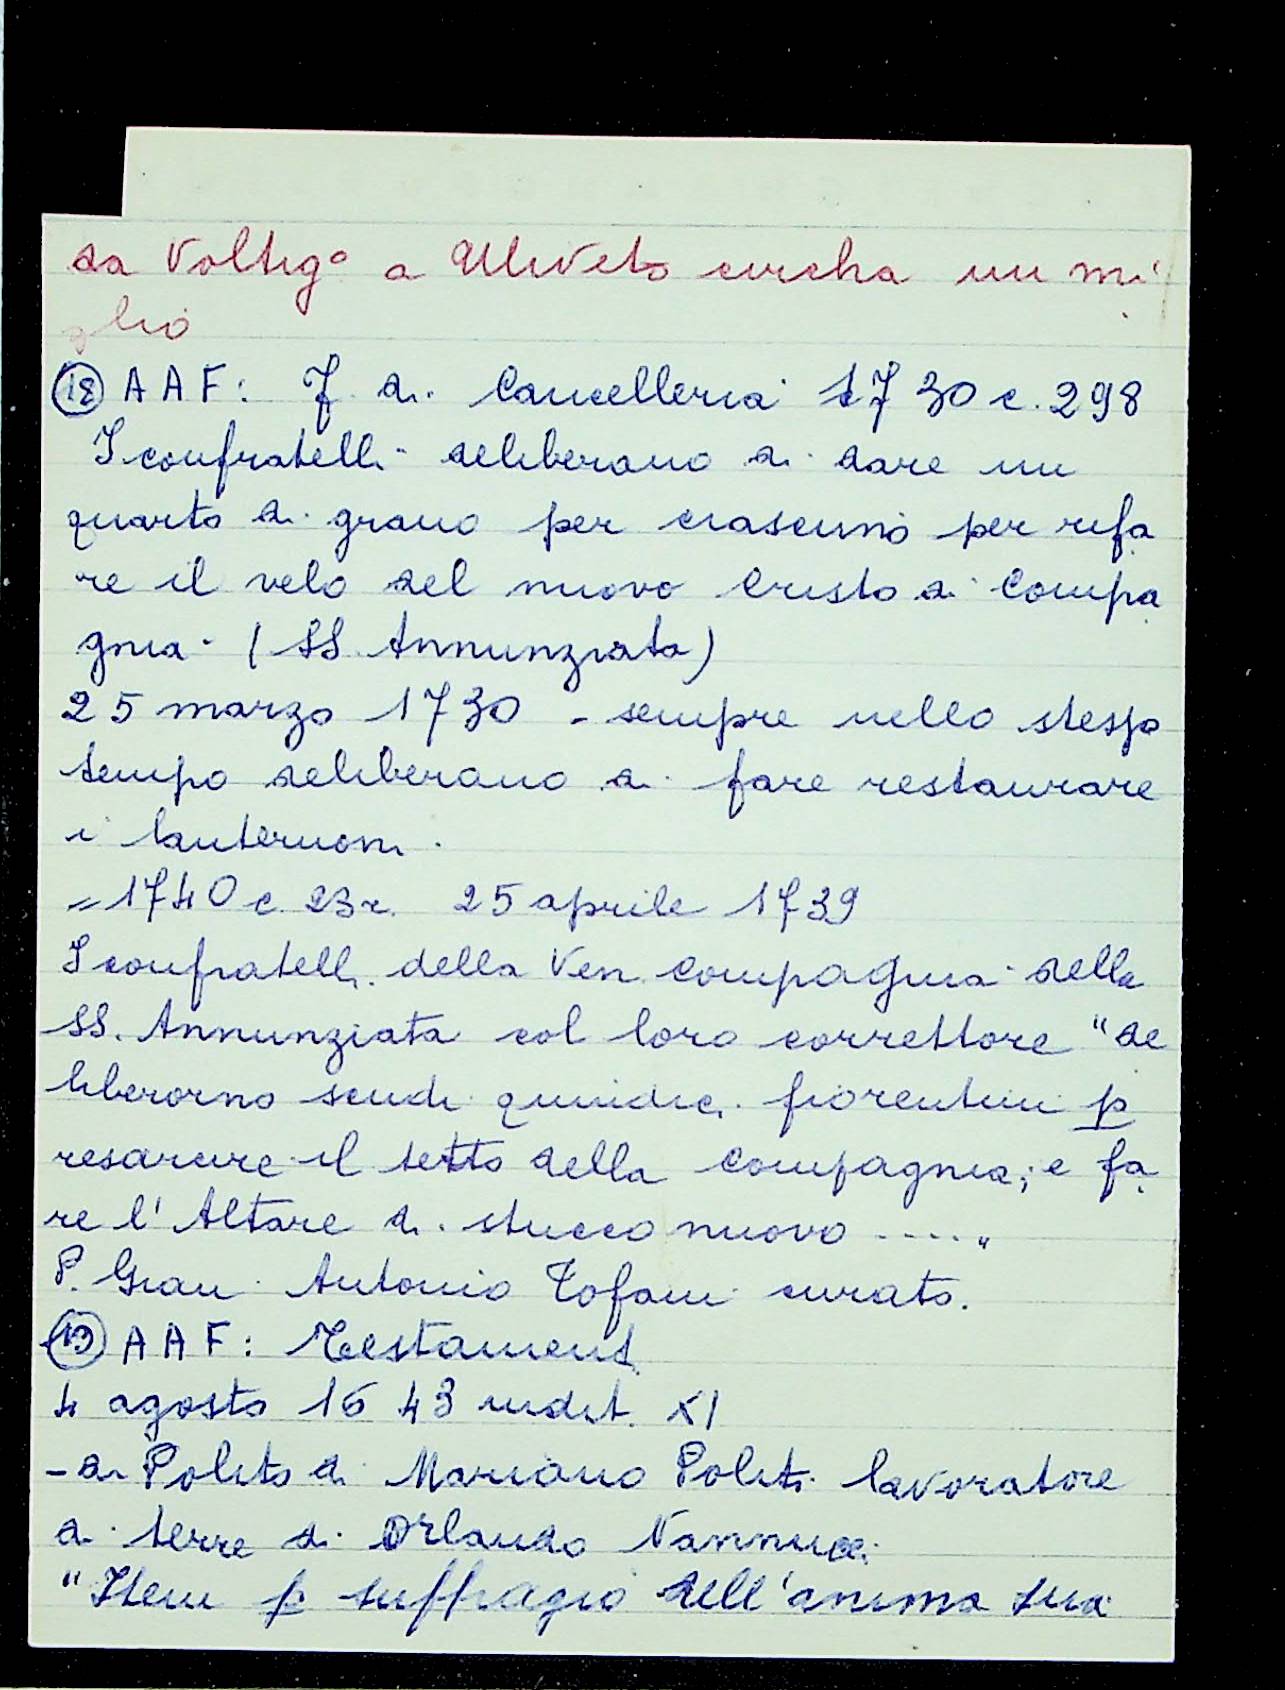 da Voltig° a Uliveto circha un mi
glio
18 AAF: F. di Cancelleria 1730 c. 298
I confratelli deliberano di dare un
quarto di grano per ciascuno per rifa
re il velo del nuovo Cristo di Compa
gnia (SS. Annunziata)
25 marzo 1730 - sempre nello stesso
tempo deliberano di fare restaurare
i lanternoni.
= 1740 c. 23r. 25 aprile 1739
I confratelli della Ven. Compagnia della
SS. Annunziata col loro correttore "de
liberorno scudi quindici fiorentini p
resarcire il tetto della compagnia; e fa
re l'Altare di stucco nuovo ....."
P. Gian Antonio Tofani curato.
19 AAF: Testamenti
4 agosto 1643 indit. XI
- di Polito di Mariano Politi lavoratore
di terre di Orlando Nannucci
"Item p suffragio dell'anima sua